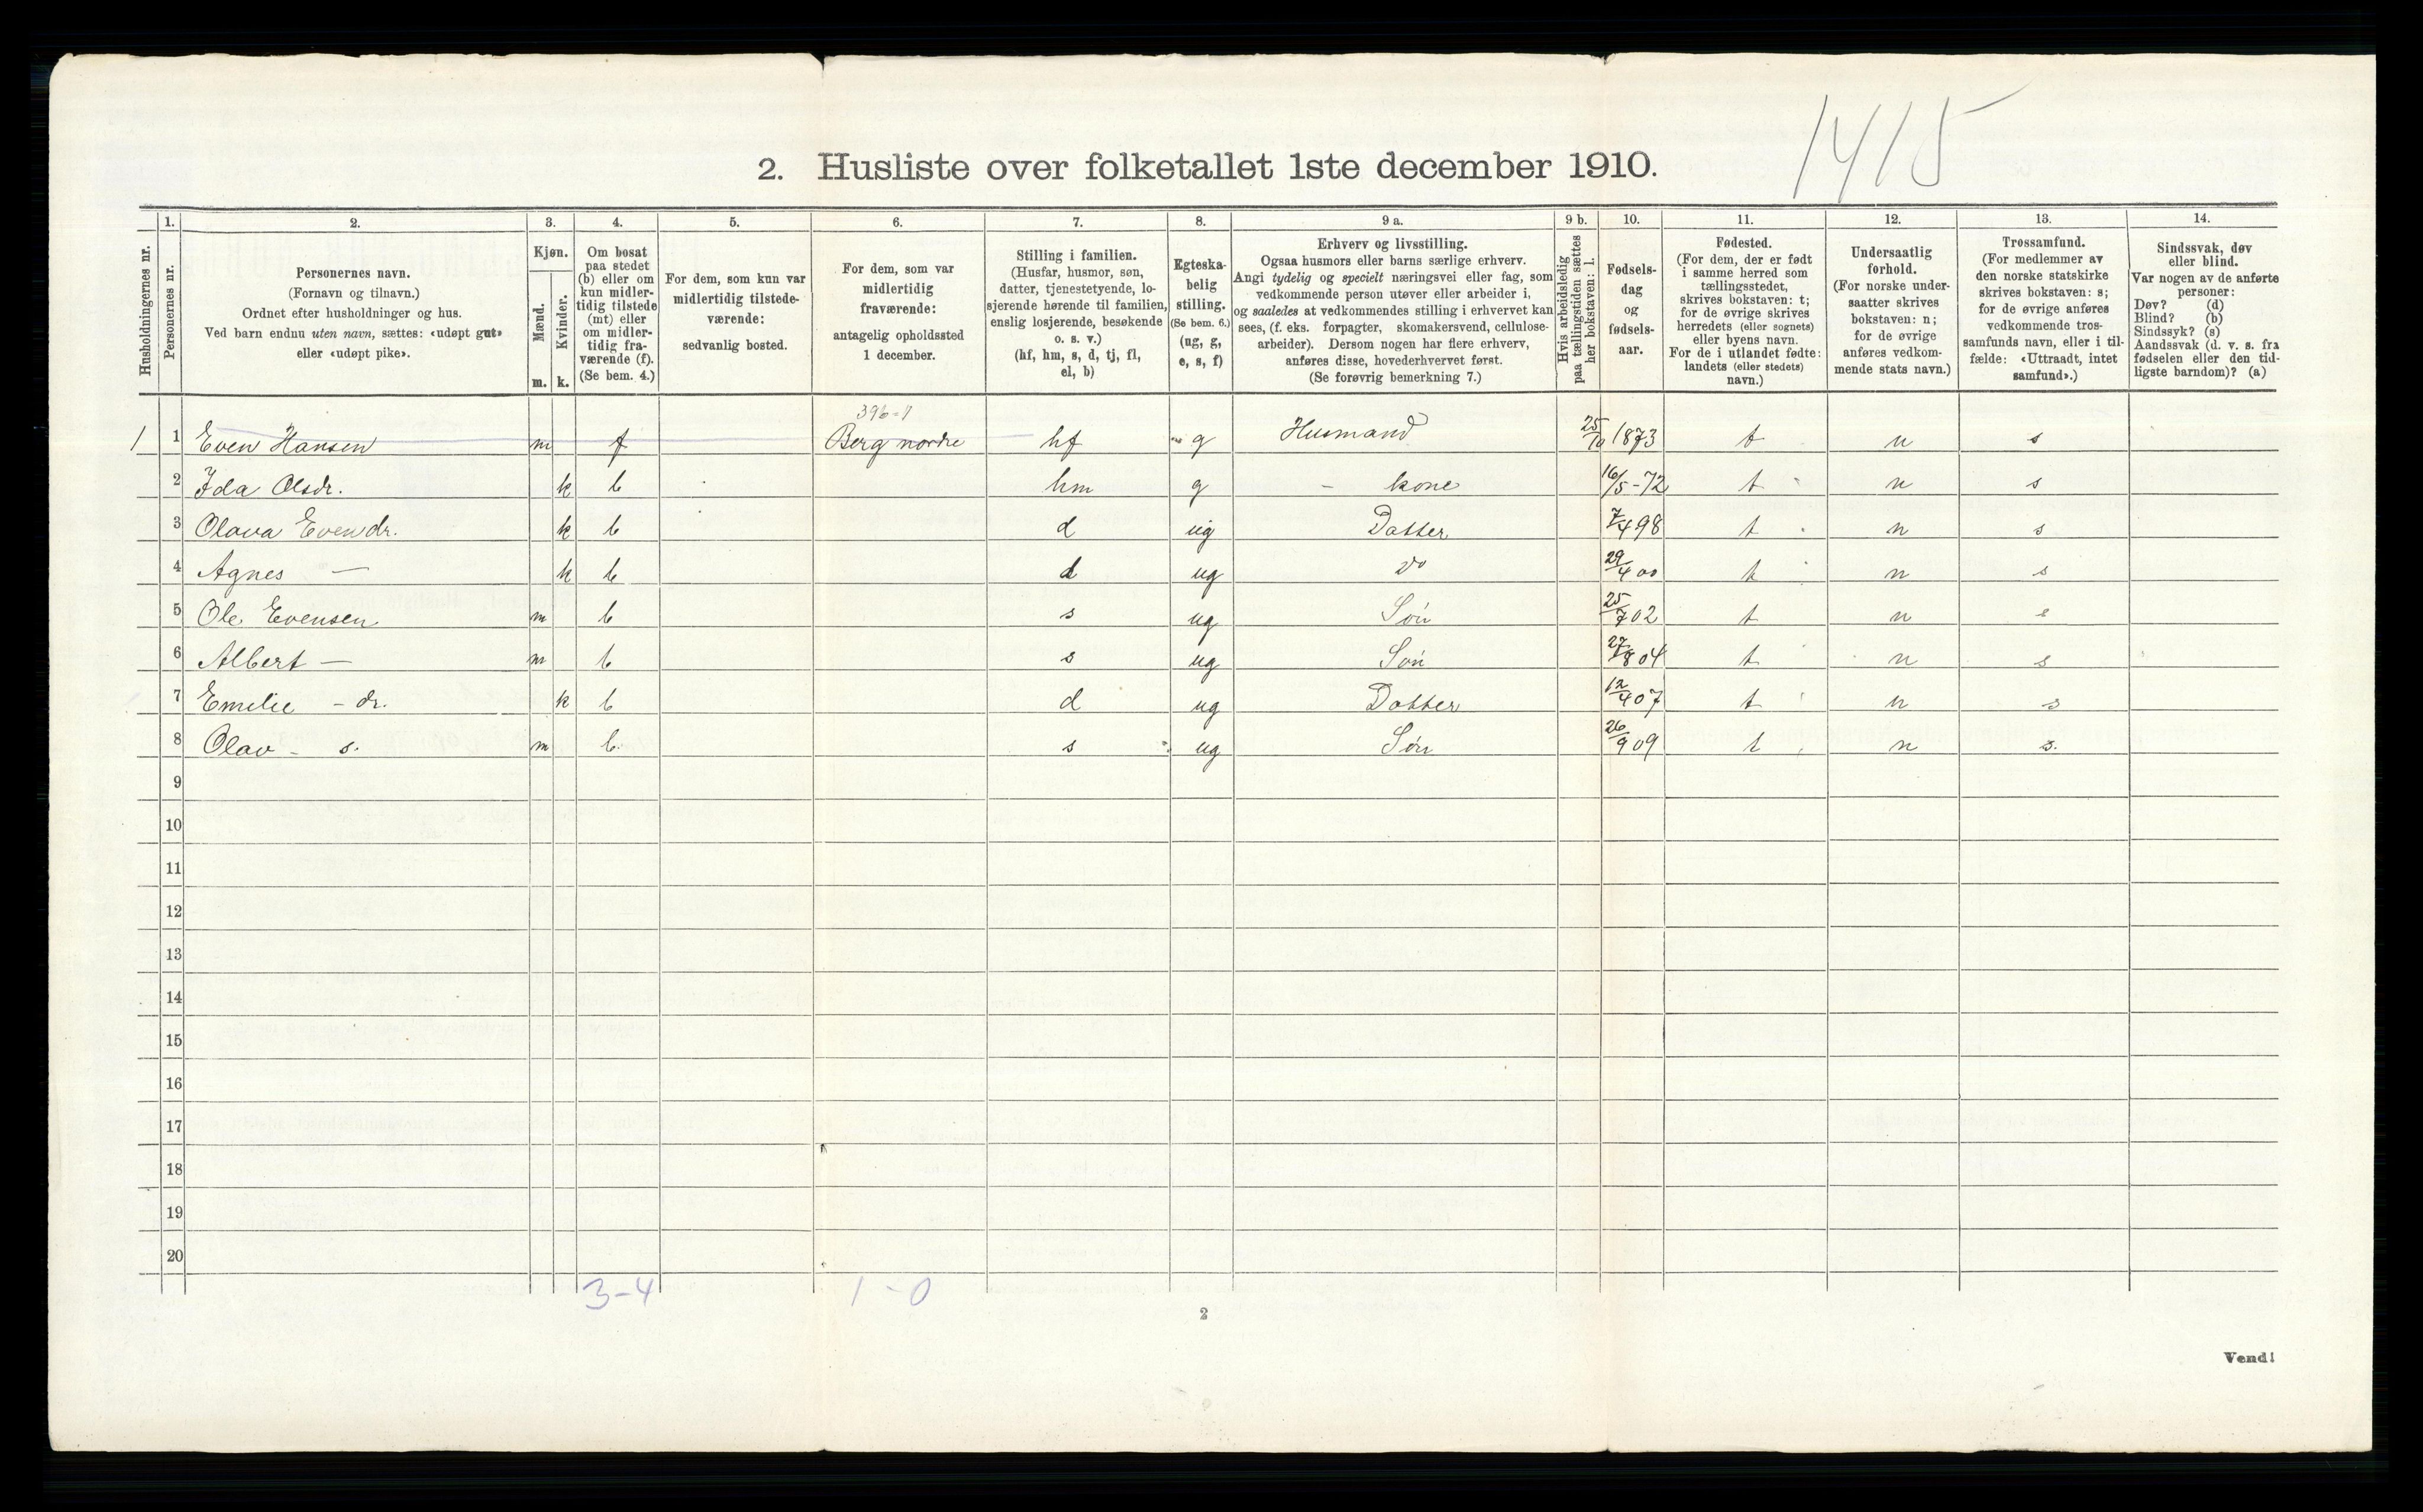 1415
2. Husliste over folketallet 1ste december 1910.
Husholdningernes nr.
1.
Personernes nr.
2.
Personernes navn.
(Fornavn og tilnavn.)
Ordnet efter husholdninger og hus.
Ved barn endnu uten navn, sættes: «udøpt gut»
eller «udøpt pike».
3.
Kjøn.
Mænd.
Kvinder.
m. k.
4.
Om bosat
paa stedet
(b) eller om
kun midler-
tidig tilstede
(mt) eller
om midler-
tidig fra-
værende (f).
(Se bem. 4.)
5.
For dem, som kun var
midlertidig tilstede-
værende:
sedvanlig bosted.
6.
For dem, som var
midlertidig
fraværende:
antagelig opholdssted
1 december.
7.
Stilling i familien.
(Husfar, husmor, søn,
datter, tjenestetyende, lo-
sjerende hørende til familien,
enslig losjerende, besøkende
o. s. v.)
(hf, hm, s, d, tj, fl,
el, b)
8.
Egteska-
belig
stilling.
(Se bem. 6.)
(ug, g,
e, s, f)
9 a.
Erhverv og livsstilling.
Ogsaa husmors eller barns særlige erhverv.
Angi tydelig og specielt næringsvei eller fag, som
vedkommende person utøver eller arbeider i,
og saaledes at vedkommendes stilling i erhvervet kan
sees, (f. eks. forpagter, skomakersvend, cellulose-
arbeider). Dersom nogen har flere erhverv,
anføres disse, hovederhvervet først.
(Se forøvrig bemerkning 7.)
9 b.
Hvis arbeidsledig
paa tællingstiden sættes
her bokstaven: l.
10.
Fødsels-
dag
og
fødsels-
aar.
11.
Fødested.
(For dem, der er født
i samme herred som
tællingsstedet,
skrives bokstaven: t;
for de øvrige skrives
herredets (eller sognets)
eller byens navn.
For de i utlandet fødte:
landets (eller stedets)
navn.)
12.
Undersaatlig
forhold.
(For norske under-
saatter skrives
bokstaven: n;
for de øvrige
anføres vedkom-
mende stats navn.)
13.
Trossamfund.
(For medlemmer av
den norske statskirke
skrives bokstaven: s;
for de øvrige anføres
vedkommende tros-
samfunds navn, eller i til-
fælde: «Uttraadt, intet
samfund».)
14.
Sindssvak, døv
eller blind.
Var nogen av de anførte
personer:
Døv? (d)
Blind? (b)
Sindssyk? (s)
Aandssvak (d. v. s. fra
fødselen eller den tid-
ligste barndom)? (a)
396-1
1 1 Even Hansen m f Berg nordre hf g Husmand 25/10 1873 t n s
2 Ida Olsdr. k b hm g – kone 16/5-72 t n s
3 Olava Evendr. k b d ug Datter 7/4 98 t n s
4 Agnes — k b d ug do 29/4 00 t n s
5 Ole Evensen m b s ug Søn 25/7 02 t n s
6 Albert — m b s ug Søn 27/8 04 t n s
7 Emilie – dr. k b d ug Datter 12/4 07 t n s
8 Olav – s. m b. s ug Søn 26/9 09 t n s.
9
10
11
12
13
14
15
16
17
18
19
20
3-4 1-0
2
Vend!